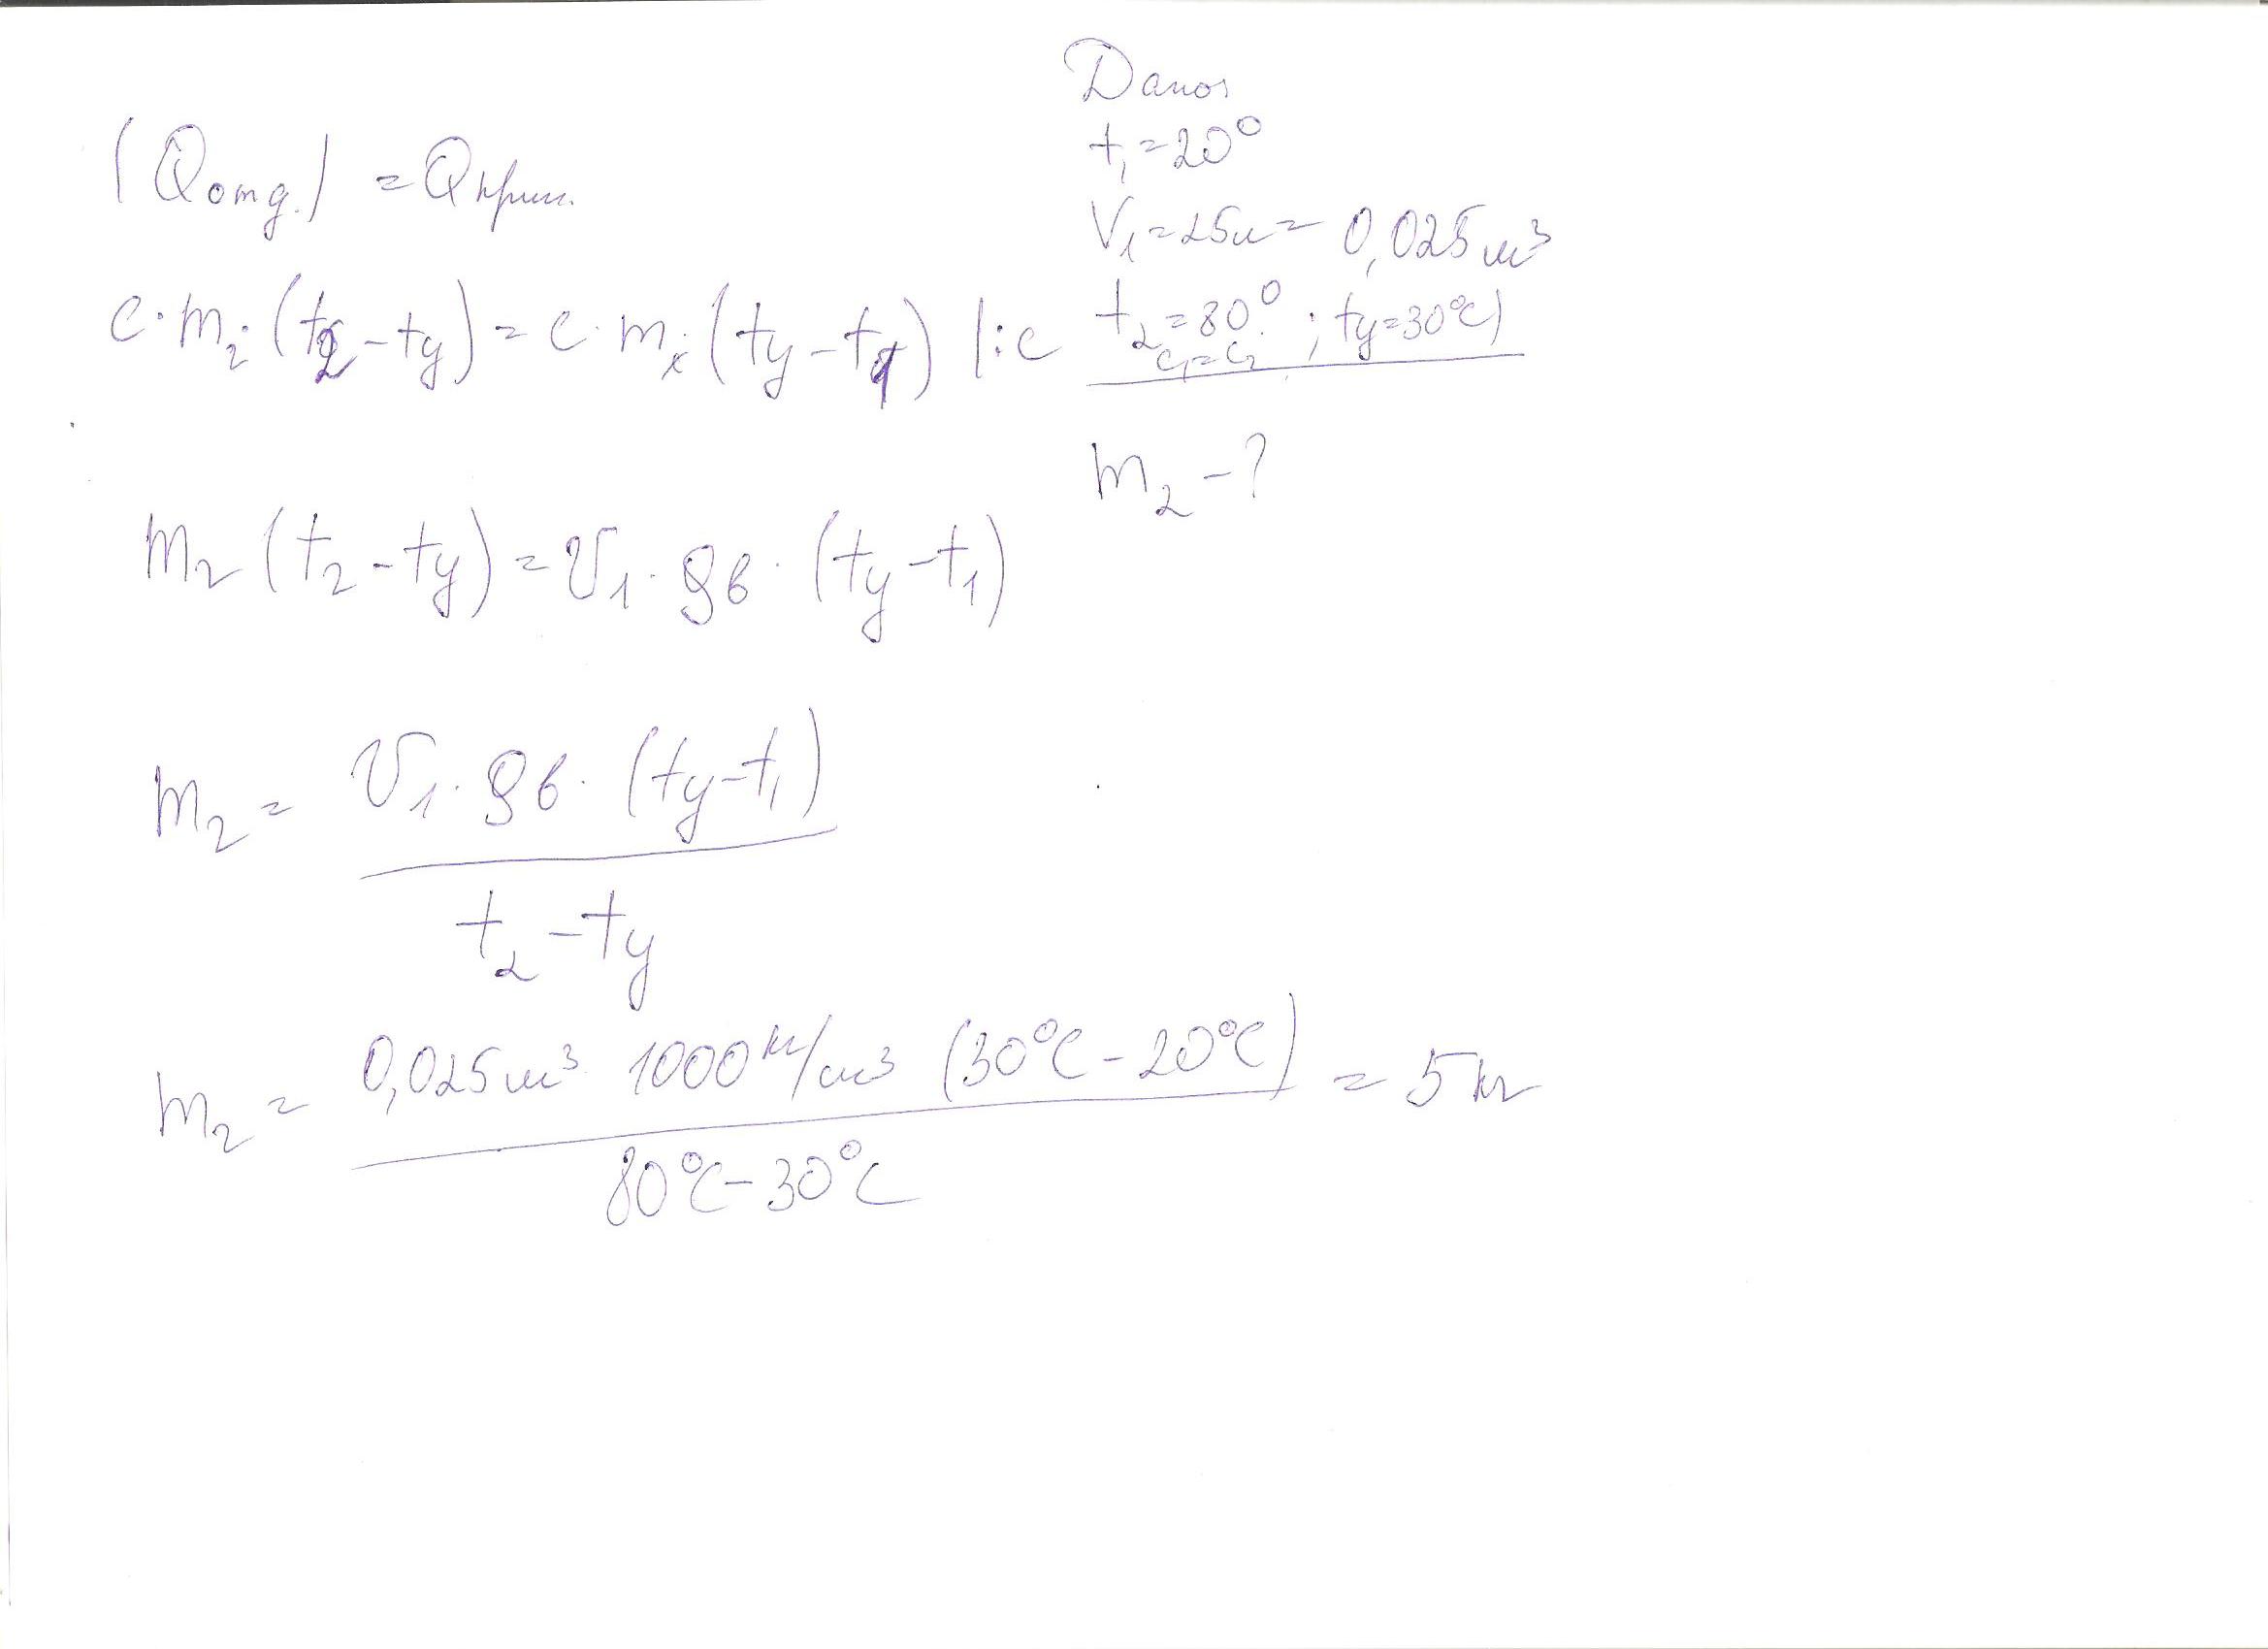 Дано:
t₁=20°
V₁=25л=0,025м³
t₂=80°; tу=30°C)
c₁=c₂
m₂-?
|Qотд.|=Qприн.
c·m₂·(t₂-tу)=c·m₁·(tу-t₁) |:c
m₂(t₂-tу)=V₁·ρв·(tу-t₁)
m₂=V₁·ρв·(tу-t₁)
t₂-tу
m₂=0,025м³·1000кг/м³(30°C-20°C)=5кг
80°C-30°C